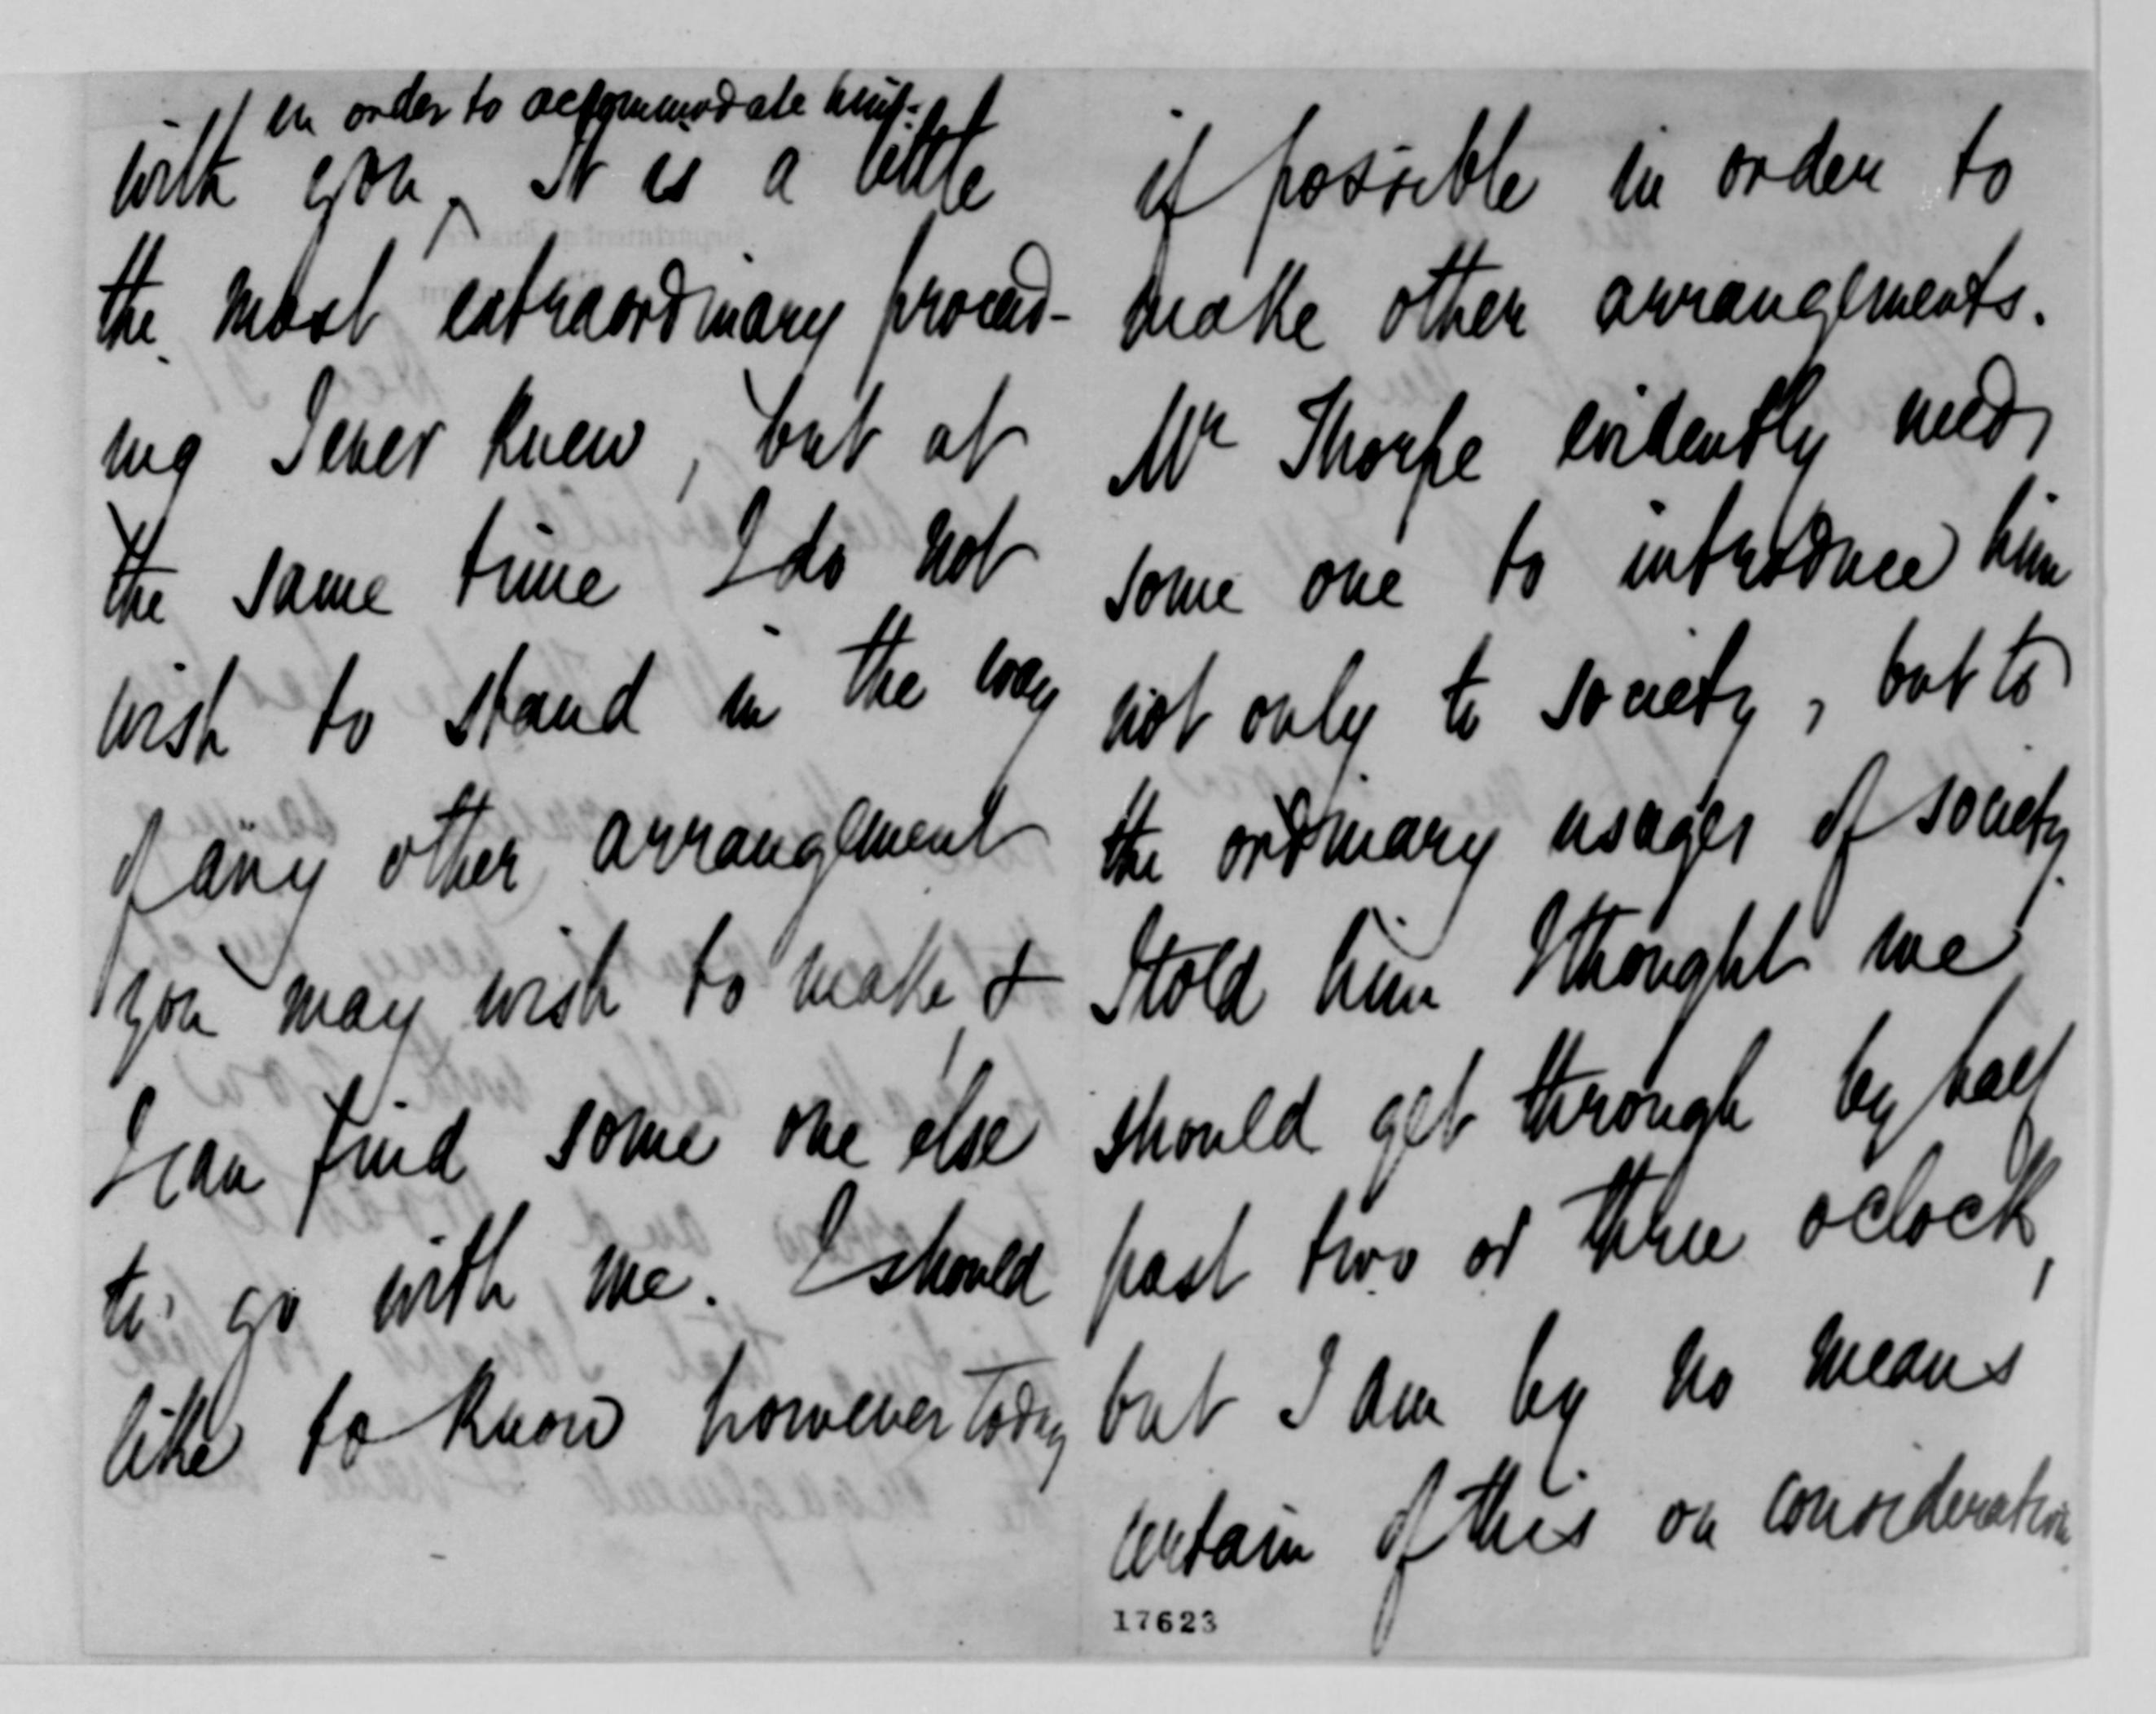 in order to accommodate him.
with you ‸ It is a little
the most extraordinary proceed-
ing I ever knew, but at
the same time I do not
wish to stand in the way
of any other arrangement
you may wish to make &
I can find some one else
to go with me. I should
like to know however today
if possible in order to
make other arrangements.
Mr Thorpe evidently needs
some one to introduce him
not only to society, but to
the ordinary usages of society.
I told him I thought we
should get through by half
past two or three oclock,
but I am by no means
certain of this on consideration
17623